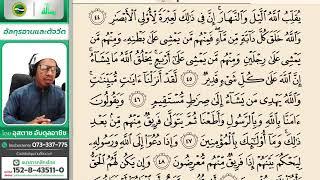 อัลกุรอานและตัจวีด
โดย อุสตาซ อับดุลอาซีซ
073-337-775
152-8-43511-0
يُقَلِّبُ ٱللَّهُ ٱلَّيْلَ وَٱلنَّهَارَ ۚ إِنَّ فِى ذَٰلِكَ لَعِبْرَةً لِّأُو۟لِى ٱلْأَبْصَٰرِ ٤٤
وَٱللَّهُ خَلَقَ كُلَّ دَآبَّةٍ مِّن مَّآءٍ ۖ فَمِنْهُم مَّن يَمْشِى عَلَىٰ بَطْنِهِۦ وَمِنْهُم مَّن
يَمْشِى عَلَىٰ رِجْلَيْنِ وَمِنْهُم مَّن يَمْشِى عَلَىٰٓ أَرْبَعٍ ۚ يَخْلُقُ ٱللَّهُ مَا يَشَآءُ ۚ
إِنَّ ٱللَّهَ عَلَىٰ كُلِّ شَىْءٍ قَدِيرٌ ٤٥ لَّقَدْ أَنزَلْنَآ ءَايَٰتٍ مُّبَيِّنَٰتٍ ۚ
وَٱللَّهُ يَهْدِى مَن يَشَآءُ إِلَىٰ صِرَٰطٍ مُّسْتَقِيمٍ ٤٦ وَيَقُولُونَ
ءَامَنَّا بِٱللَّهِ وَبِٱلرَّسُولِ وَأَطَعْنَا ثُمَّ يَتَوَلَّىٰ فَرِيقٌ مِّنْهُم مِّنۢ بَعْدِ
ذَٰلِكَ ۚ وَمَآ أُو۟لَٰٓئِكَ بِٱلْمُؤْمِنِينَ ٤٧ وَإِذَا دُعُوٓا۟ إِلَى ٱللَّهِ وَرَسُولِهِۦ
لِيَحْكُمَ بَيْنَهُمْ إِذَا فَرِيقٌ مِّنْهُم مُّعْرِضُونَ ٤٨ وَإِن يَكُن لَّهُمُ ٱلْحَقُّ